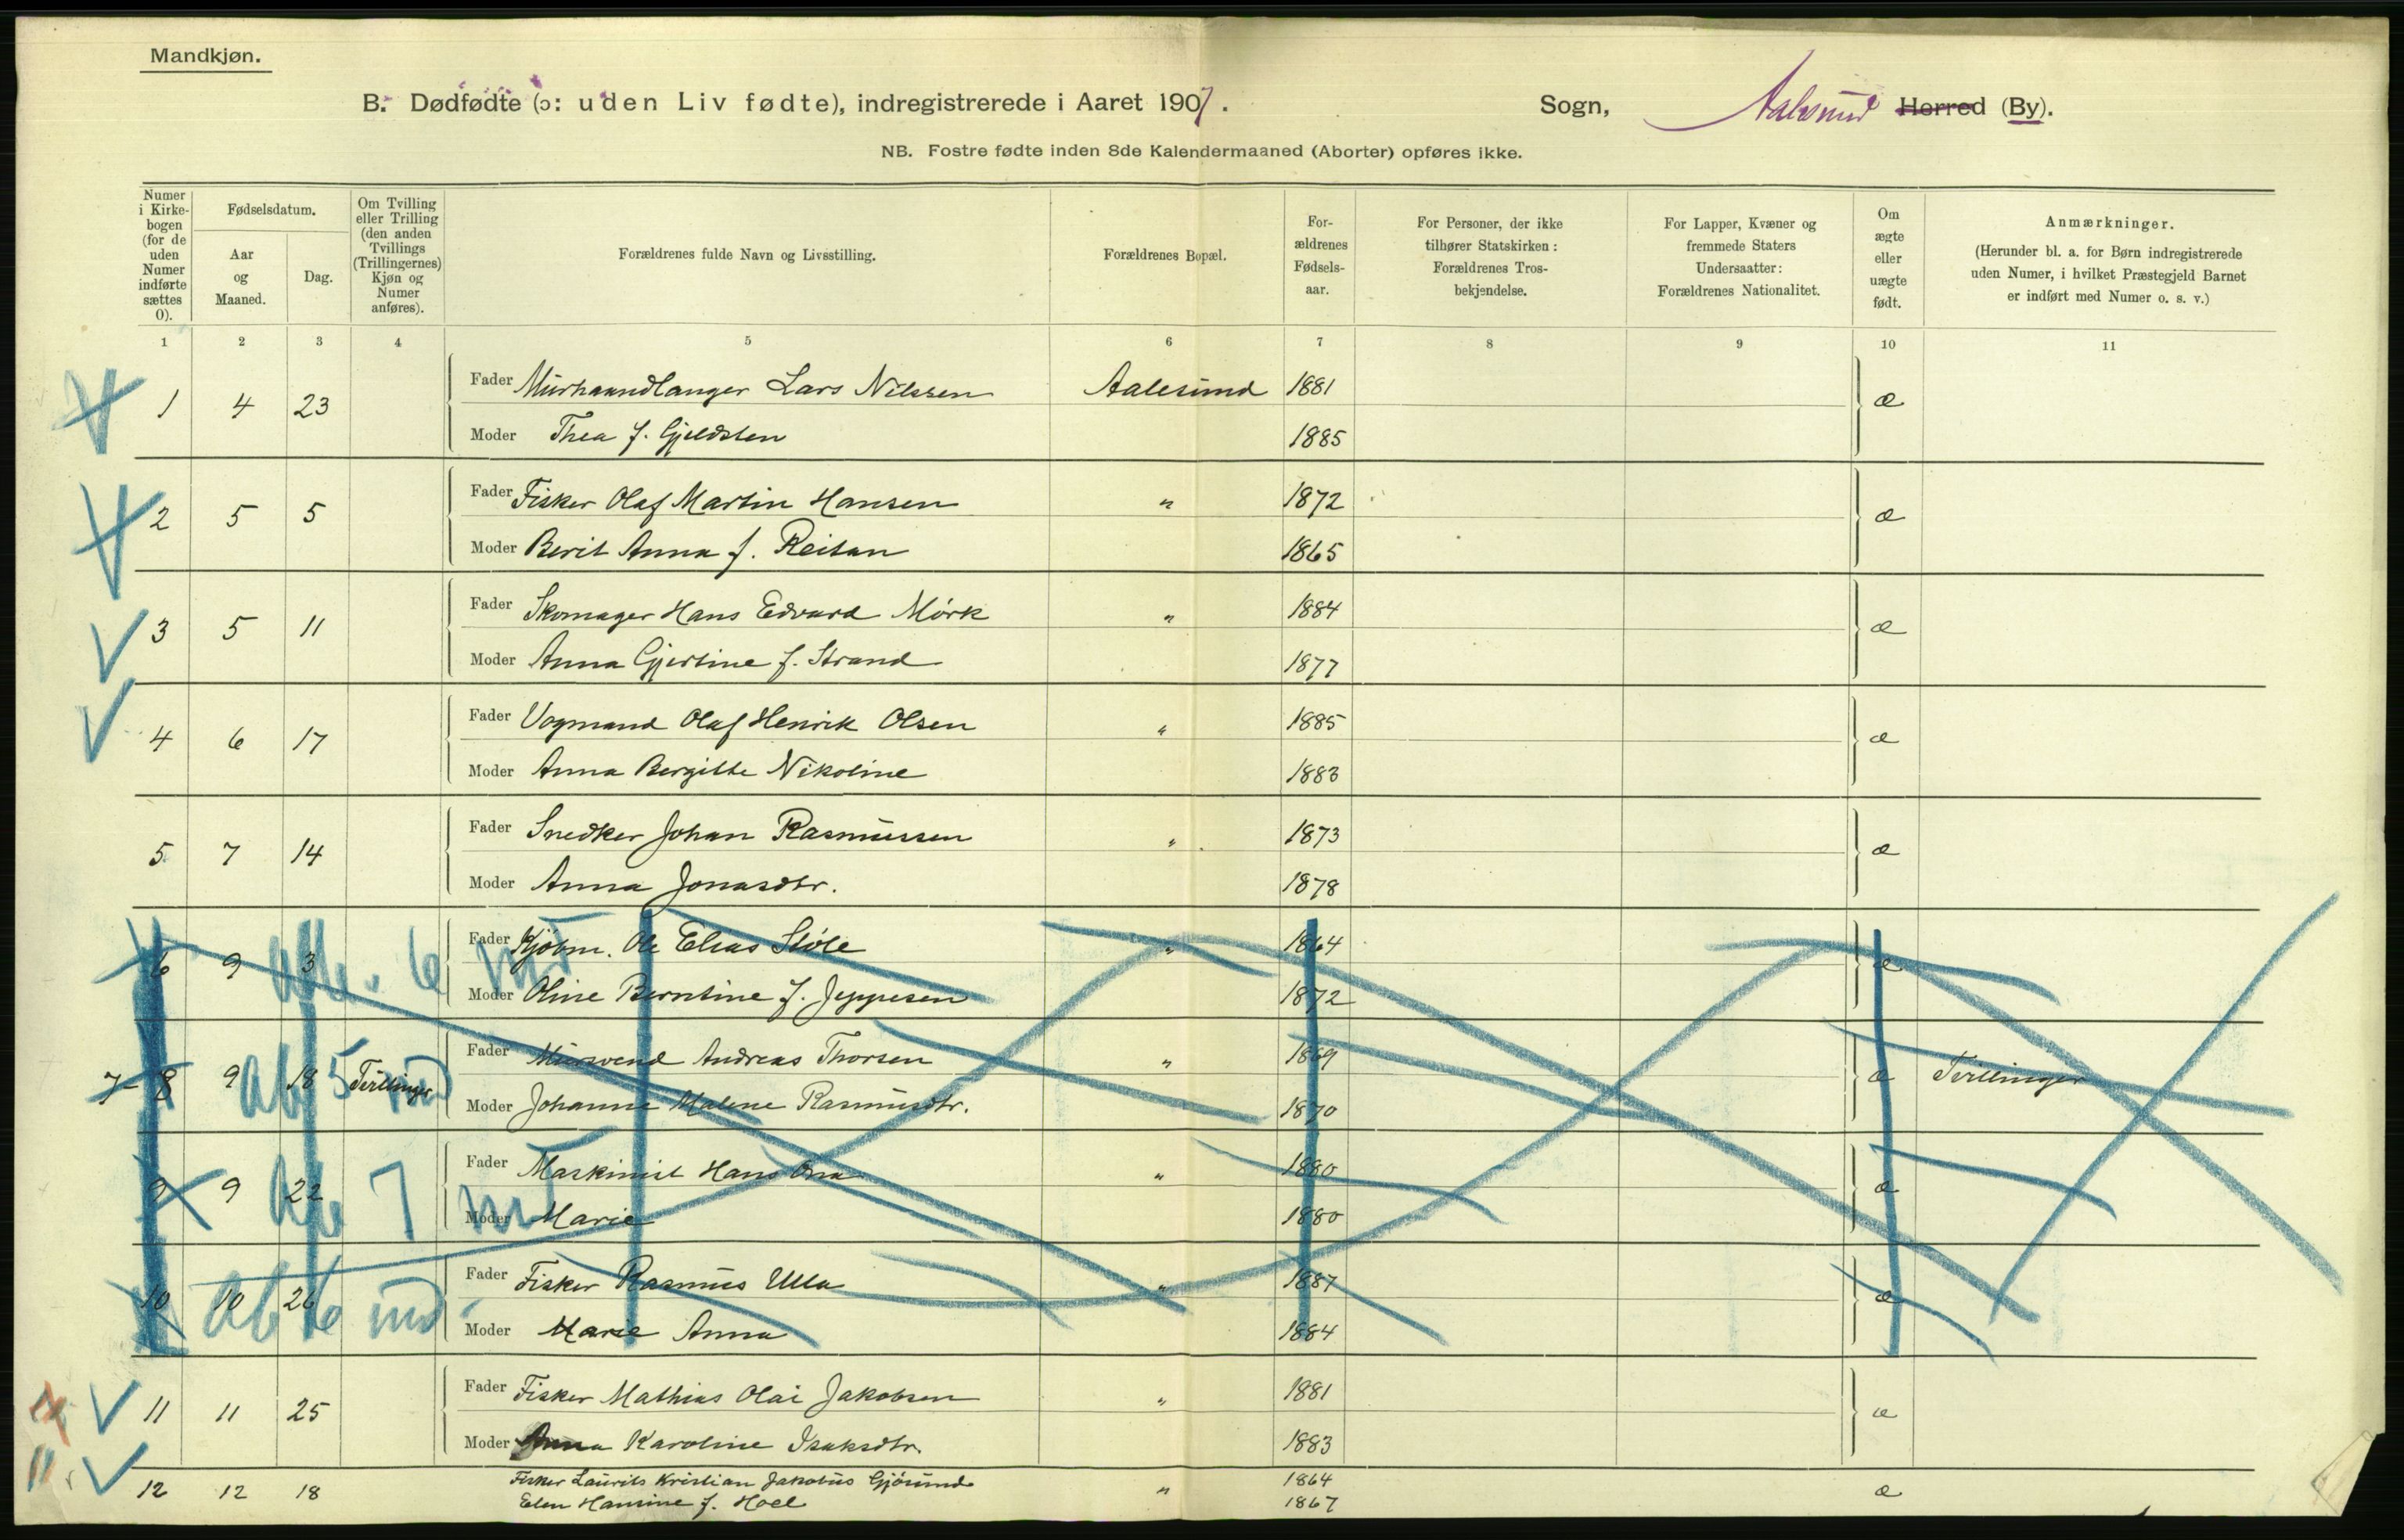 Mandkjøn.
B. Dødfødte (ɔ: uden Liv fødte), indregistrerede i Aaret 1907. Sogn, Aalesund Herred (By).
NB. Fostre fødte inden 8de Kalendermaaned (Aborter) opføres ikke.
Numer i Kirkebogen (for de uden Numer indførte sættes 0).
Fødselsdatum.
Aar og Maaned.
Dag.
Om Tvilling eller Trilling (den anden Tvillings (Trillingernes) Kjøn og Numer anføres).
Forældrenes fulde Navn og Livsstilling.
Forældrenes Bopæl.
Forældrenes Fødselsaar.
For Personer, der ikke tilhører Statskirken: Forældrenes Trosbekjendelse.
For Lapper, Kvæner og fremmede Staters Undersaatter: Forældrenes Nationalitet.
Om ægte eller uægte født.
Anmærkninger.
(Herunder bl. a. for Børn indregistrerede uden Numer, i hvilket Præstegjeld Barnet er indført med Numer o. s. v.)
1 2 3 4 5 6 7 8 9 10 11
1 4 23 Fader Murhaandlanger Lars Nilssen Aalesund 1881 æ
Moder Thea f. Gjeldsten 1885
2 5 5 Fader Fisker Olaf Martin Hansen " 1872 æ
Moder Berit Anna f. Reitan 1865
3 5 11 Fader Skomager Hans Edvard Mörk " 1884 æ
Moder Anna Gjertine f. Strand 1877
4 6 17 Fader Vognmand Olaf Henrik Olsen " 1885 æ
Moder Anna Bergitte Nikoline 1883
5 7 14 Fader Snedker Johan Rasmussen " 1873 æ
Moder Anna Jonasdtr. 1878
6 9 3 Fader Kjöbm. Ole Elias Stöle " 1864 æ
Moder Oline Berntine f. Jeppesen 1872
7-8 9 18 Tvillinger Fader Mursvend Andreas Thorsen " 1869 æ Tvillinger
Moder Johanne Malene Rasmusdtr. 1870
9 9 22 Fader Maskinist Hans " 1880 æ
Moder Marie 1880
10 10 26 Fader Fisker Rasmus Ulla " 1887 æ
Moder Marie Anna 1884
11 11 25 Fader Fisker Mathias Olai Jakobsen " 1881 æ
Moder Anna Karoline Isaksdtr. 1883
12 12 18 Fisker Laurits Kristian Jakobus Gjörund " 1864 æ
Elen Hansine f. Hoel 1867